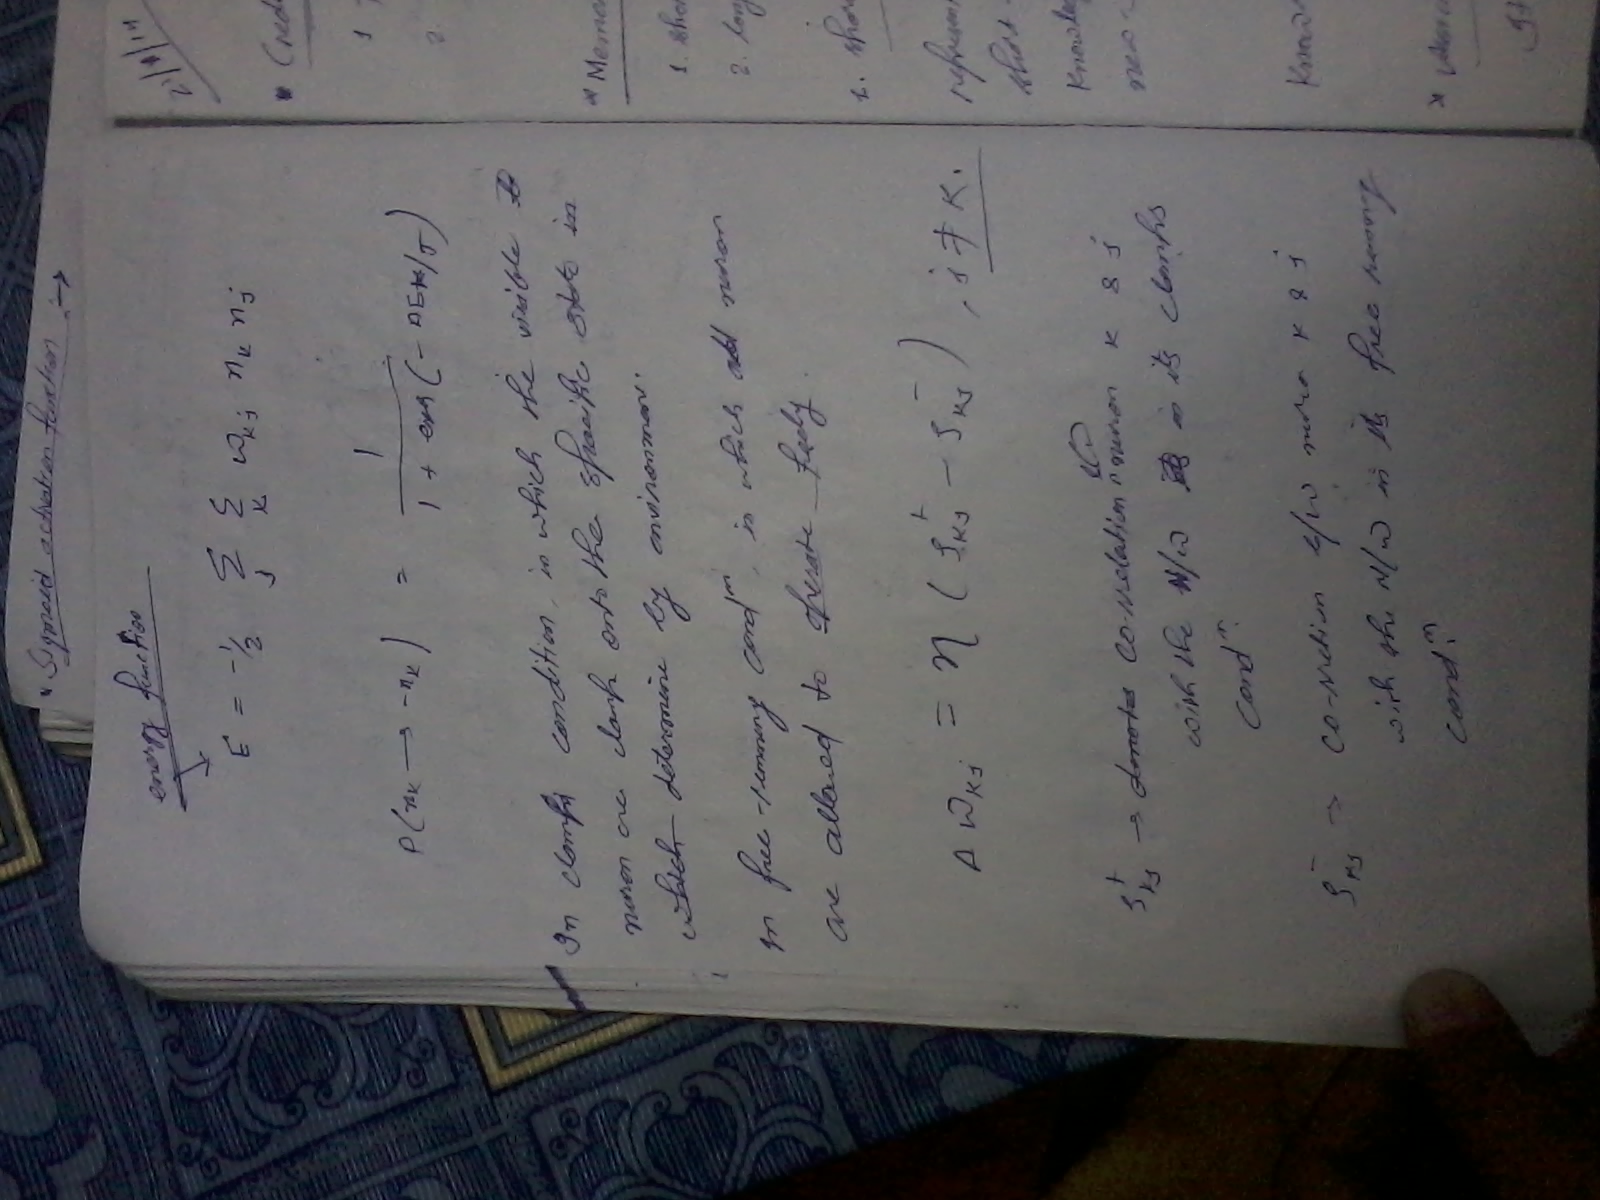 * Sigmoid activation function →
energy function
E = -1/2 Σj Σk wkj xk xj
P(xk → -xk) = 1 / 1 + exp(-ΔEk/T)
In clamps condition, in which the visible
nuron are clamp onto the specific state in
which determine by environment.
In free-running condn, in which all nuron
are allowed to operate freely.
Δwkj = η (ρkj+ - ρkj-), j ≠ k.
ρkj+ → denotes co-relation b/w nuron k & j
with the N/w in its clamps
condn.
ρkj- → co-relation b/w nuron k & j
with the N/w in its free runing
condn.
* Mem
1. Shor
2. lon
1. Shor
Knowle
Know